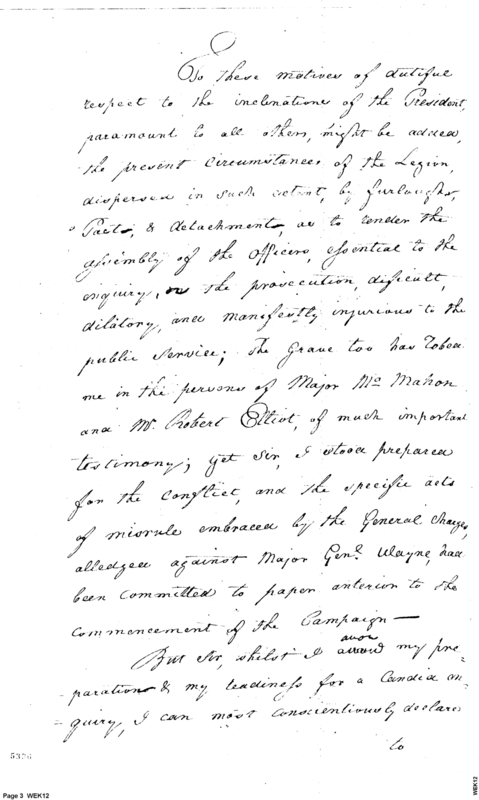 To these motives of dutiful
respect to the inclinations of the President,
paramount to all others, might be added,
the present Circumstances of the Legion,
dispersed in such extent, by furloughs,
Posts, & detachments, as to render the
assembly of the Officers, essential to the
enquiry, or the prosecution, difficult,
dilatory, and manifestly injurious to the
public Service; The Grave too has robed
me in the persons of Major Mc Mahon
and Mr. Robert Elliot, of much important
testimony; yet Sir, I stood prepared
for the Conflict, and the specific acts
of misrule embraced by the General Charges,
alledged against Major Genl. Wayne, had
been committed to paper anterior to the
Commencement of the Campaign —
But Sir, whilst I avow my pre-
-parations & my readiness for a Candid en-
-quiry, I can most Conscientiously declare
to
5336
Page 3 WEK12
WEK12